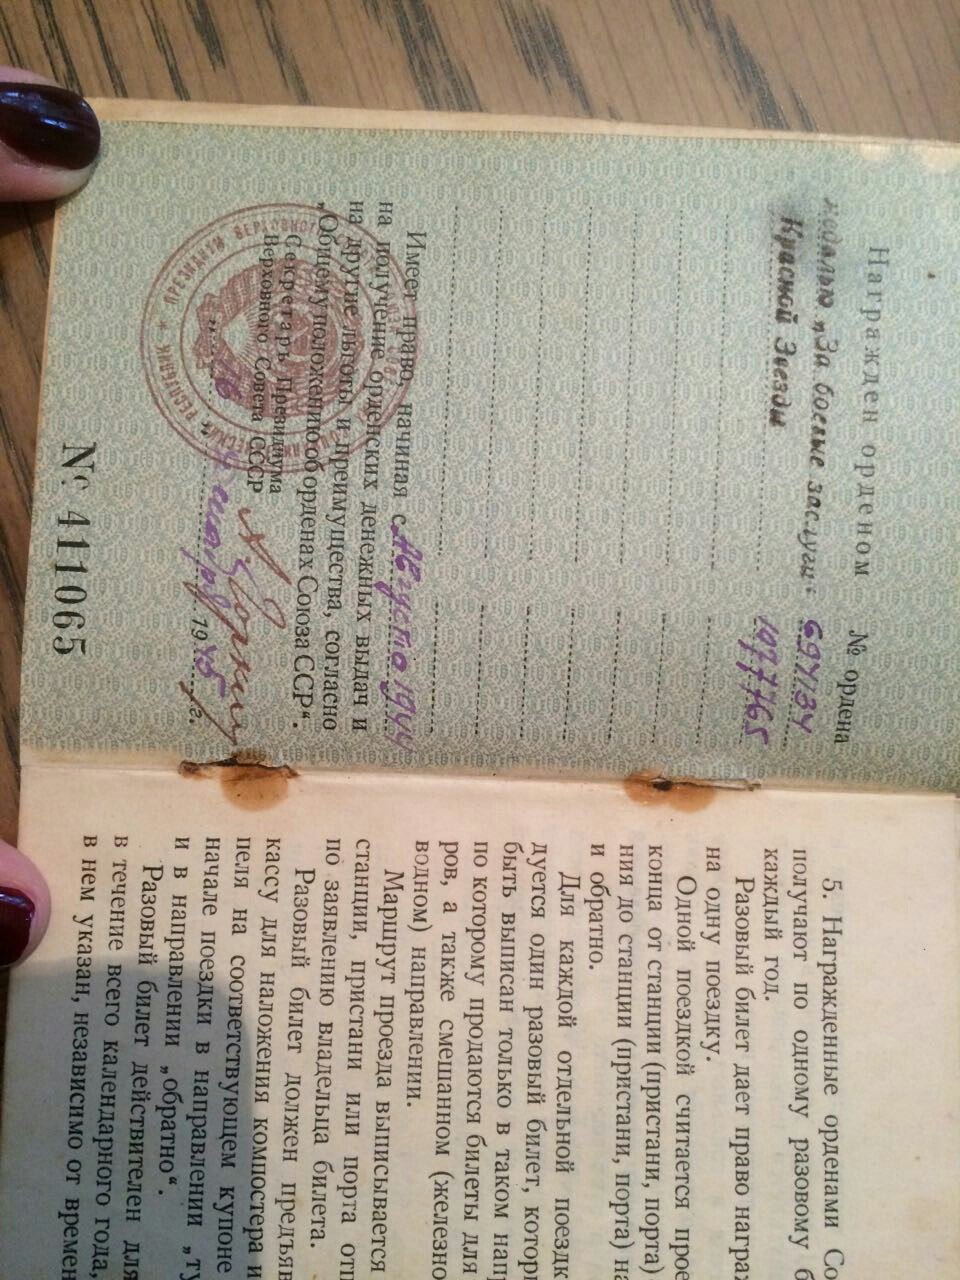 Награжден орденом № ордена
медалью „За боевые заслуги" 694134
Красной Звезды 1977765
Имеет право, начиная с Августа 1944
на получение орденских денежных выдач и
на другие льготы и преимущества, согласно
„Общему положению об орденах Союза ССР".
Секретарь Президиума
Верховного Совета СССР
„16" 1945 г.
№ 411065
5. Награжденные орденами Со
получают по одному разовому б
каждый год.
Разовый билет дает право награ
на одну поездку.
Одной поездкой считается прое
конца от станции (пристани, порта)
ния до станции (пристани, порта) на
и обратно.
Для каждой отдельной поездк
дуется один разовый билет, котори
быть выписан только в таком напр
по которому продаются билеты для
ров, а также смешанном (железно
водном) направлении.
Маршрут проезда выписывается
станции, пристани или порта отп
по заявлению владельца билета.
Разовый билет должен предъяв
кассу для наложения компостера и
пеля на соответствующем купоне
начале поездки в направлении „ту
и в направлении „обратно".
Разовый билет действителен для
в течение всего календарного года,
в нем указан, независимо от времен